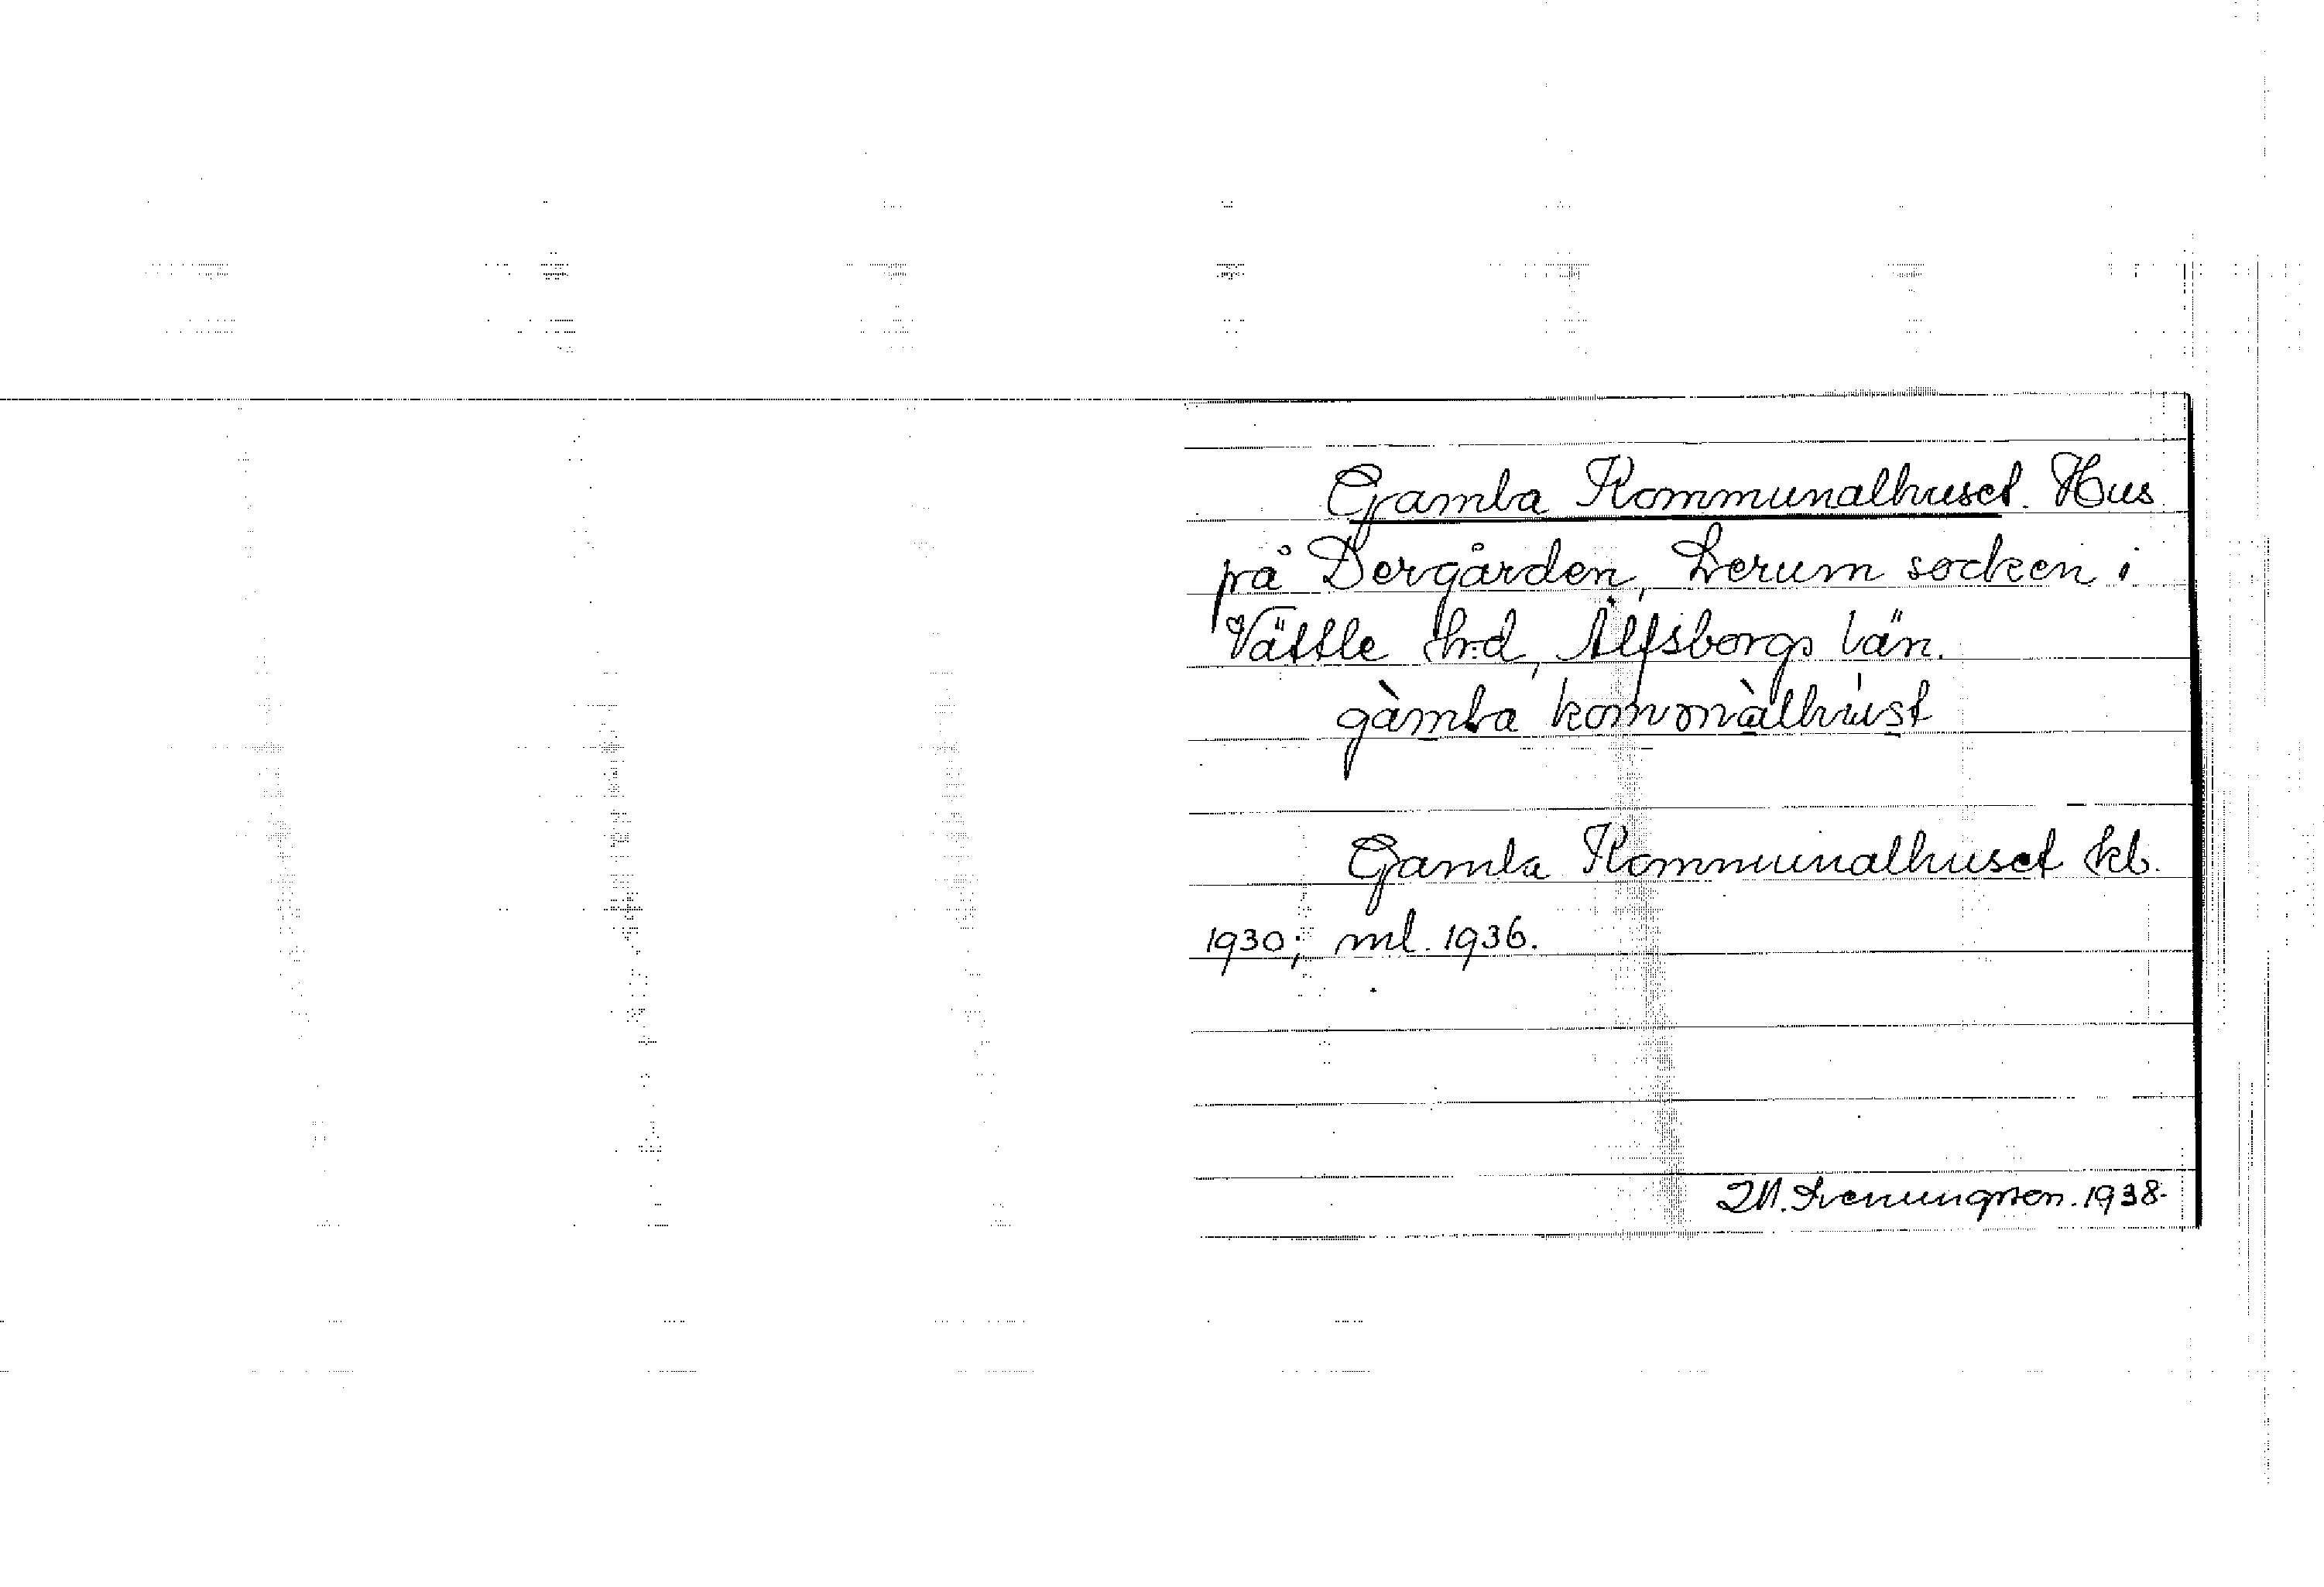 Gamla Kommunalhuset. Hus
på Dergården, Lerum socken i
Vättle hd, Älfsborgs län.
gàmla komonàlhúst
Gamla Kommunalhuset kb.
1930; ml. 1936.
1938.